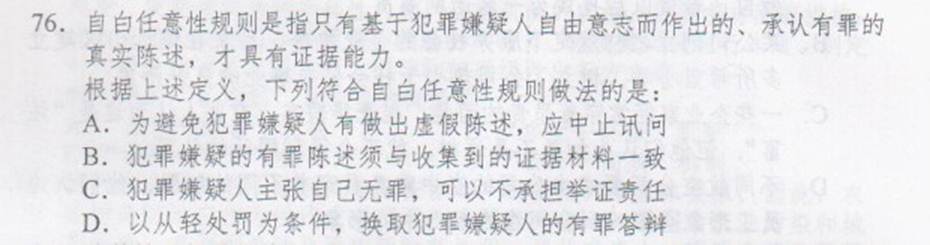 76. 自白任意性规则是指只有基于犯罪嫌疑人自由意志而作出的、承认有罪的
真实陈述，才具有证据能力。
根据上述定义，下列符合自白任意性规则做法的是：
A. 为避免犯罪嫌疑人有做出虚假陈述，应中止讯问
B. 犯罪嫌疑的有罪陈述须与收集到的证据材料一致
C. 犯罪嫌疑人主张自己无罪，可以不承担举证责任
D. 以从轻处罚为条件，换取犯罪嫌疑人的有罪答辩